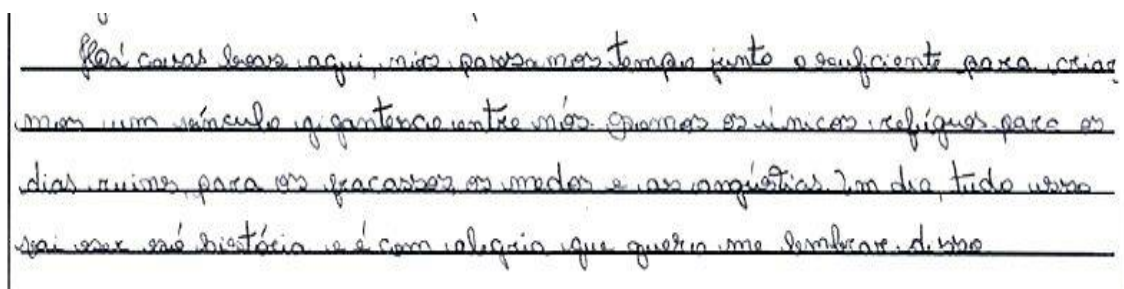 Há coisas boas aqui, nós passamos tempo junto o suficiente para criar
mos um vínculo gigantesco entre nós. Somos os únicos refúgios para os
dias ruins, para os fracassos, os medos e as angústias. Um dia, tudo isso
vai ser só história e é com alegria que quero me lembrar disso